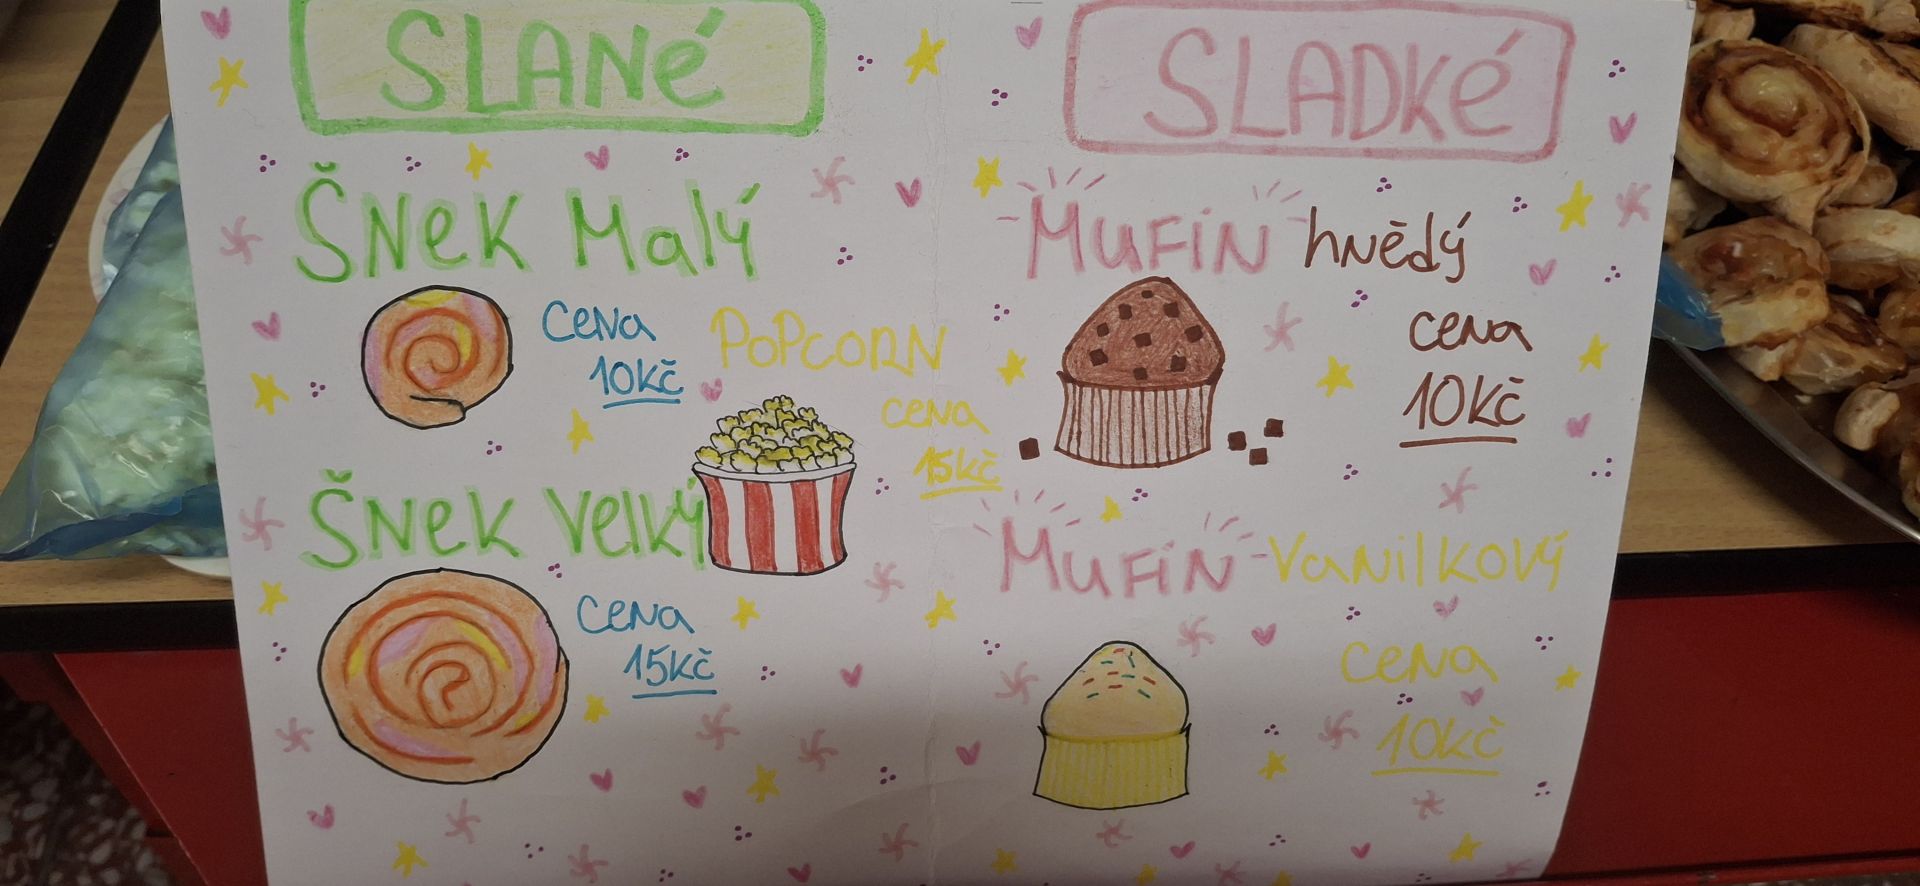 SLANÉ
ŠNEK Malý
cena
10Kč
POPCORN
cena
15Kč
ŠNEK Velký
cena
15Kč
SLADKÉ
MUFIN hnědý
cena
10Kč
MUFIN Vanilkový
cena
10Kč